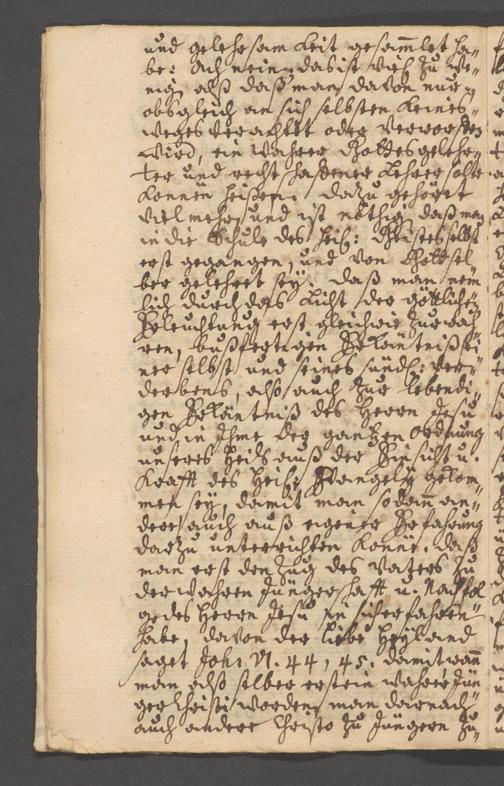 und gelehrsamkeit gesamlet ha-
be: Ach nein, das ist viel zu we-
nig, alß daß man davon nur,
obs gleich an sich selbsten keines-
weges verachtet oder verworffen
wird, ein wahrer Gottesgelehr-
ter und rechtschaffener Lehrer solte
können heißen. Dazu gehöret
vielmehr, und ist nöthig, daß man
in die Schule des heil: Geistes selbst
erst gegangen, und von Gott sel-
ber gelehret sey, daß man nem-
lich durch das Licht der göttlichen
Erleuchtung erst gleichwie zur wah-
ren, bußfertigen Erkäntniß sei-
ner selbst und seines sündl: Ver-
derbens, also auch zur lebendi-
gen Erkäntniß des Herrn Jesu
und in Ihme der gantzen Ordnung
unseres Heils auß der Einsicht u.
Krafft des Heil: Evangelij gekom-
men sey, damit man sodann an-
dere auch auß eigener Erfahrung
darzu unterrichten könne. daß
man erst den Zug des Vaters zu
der wahren Jüngerschafft u. Nachfol-
ge des Herrn Jesu an sich erfahren
habe, davon der liebe Heyland
saget Joh. VI. 44, 45. damit wann
man also selber erst ein wahrer Jün-
ger Christi worden, man darnach
auch andere Christo zu Jüngern zu-